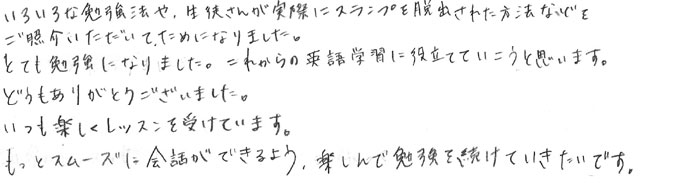 いろいろな勉強法や、生徒さんが実際にスランプを脱出された方法などを
ご照介いただいて、ためになりました。
とても勉強になりました。これからの英語学習に役立てていこうと思います。
どうもありがとうございました。
いつも楽しくレッスンを受けています。
もっとスムーズに会話ができるよう、楽しんで勉強を続けていきたいです。